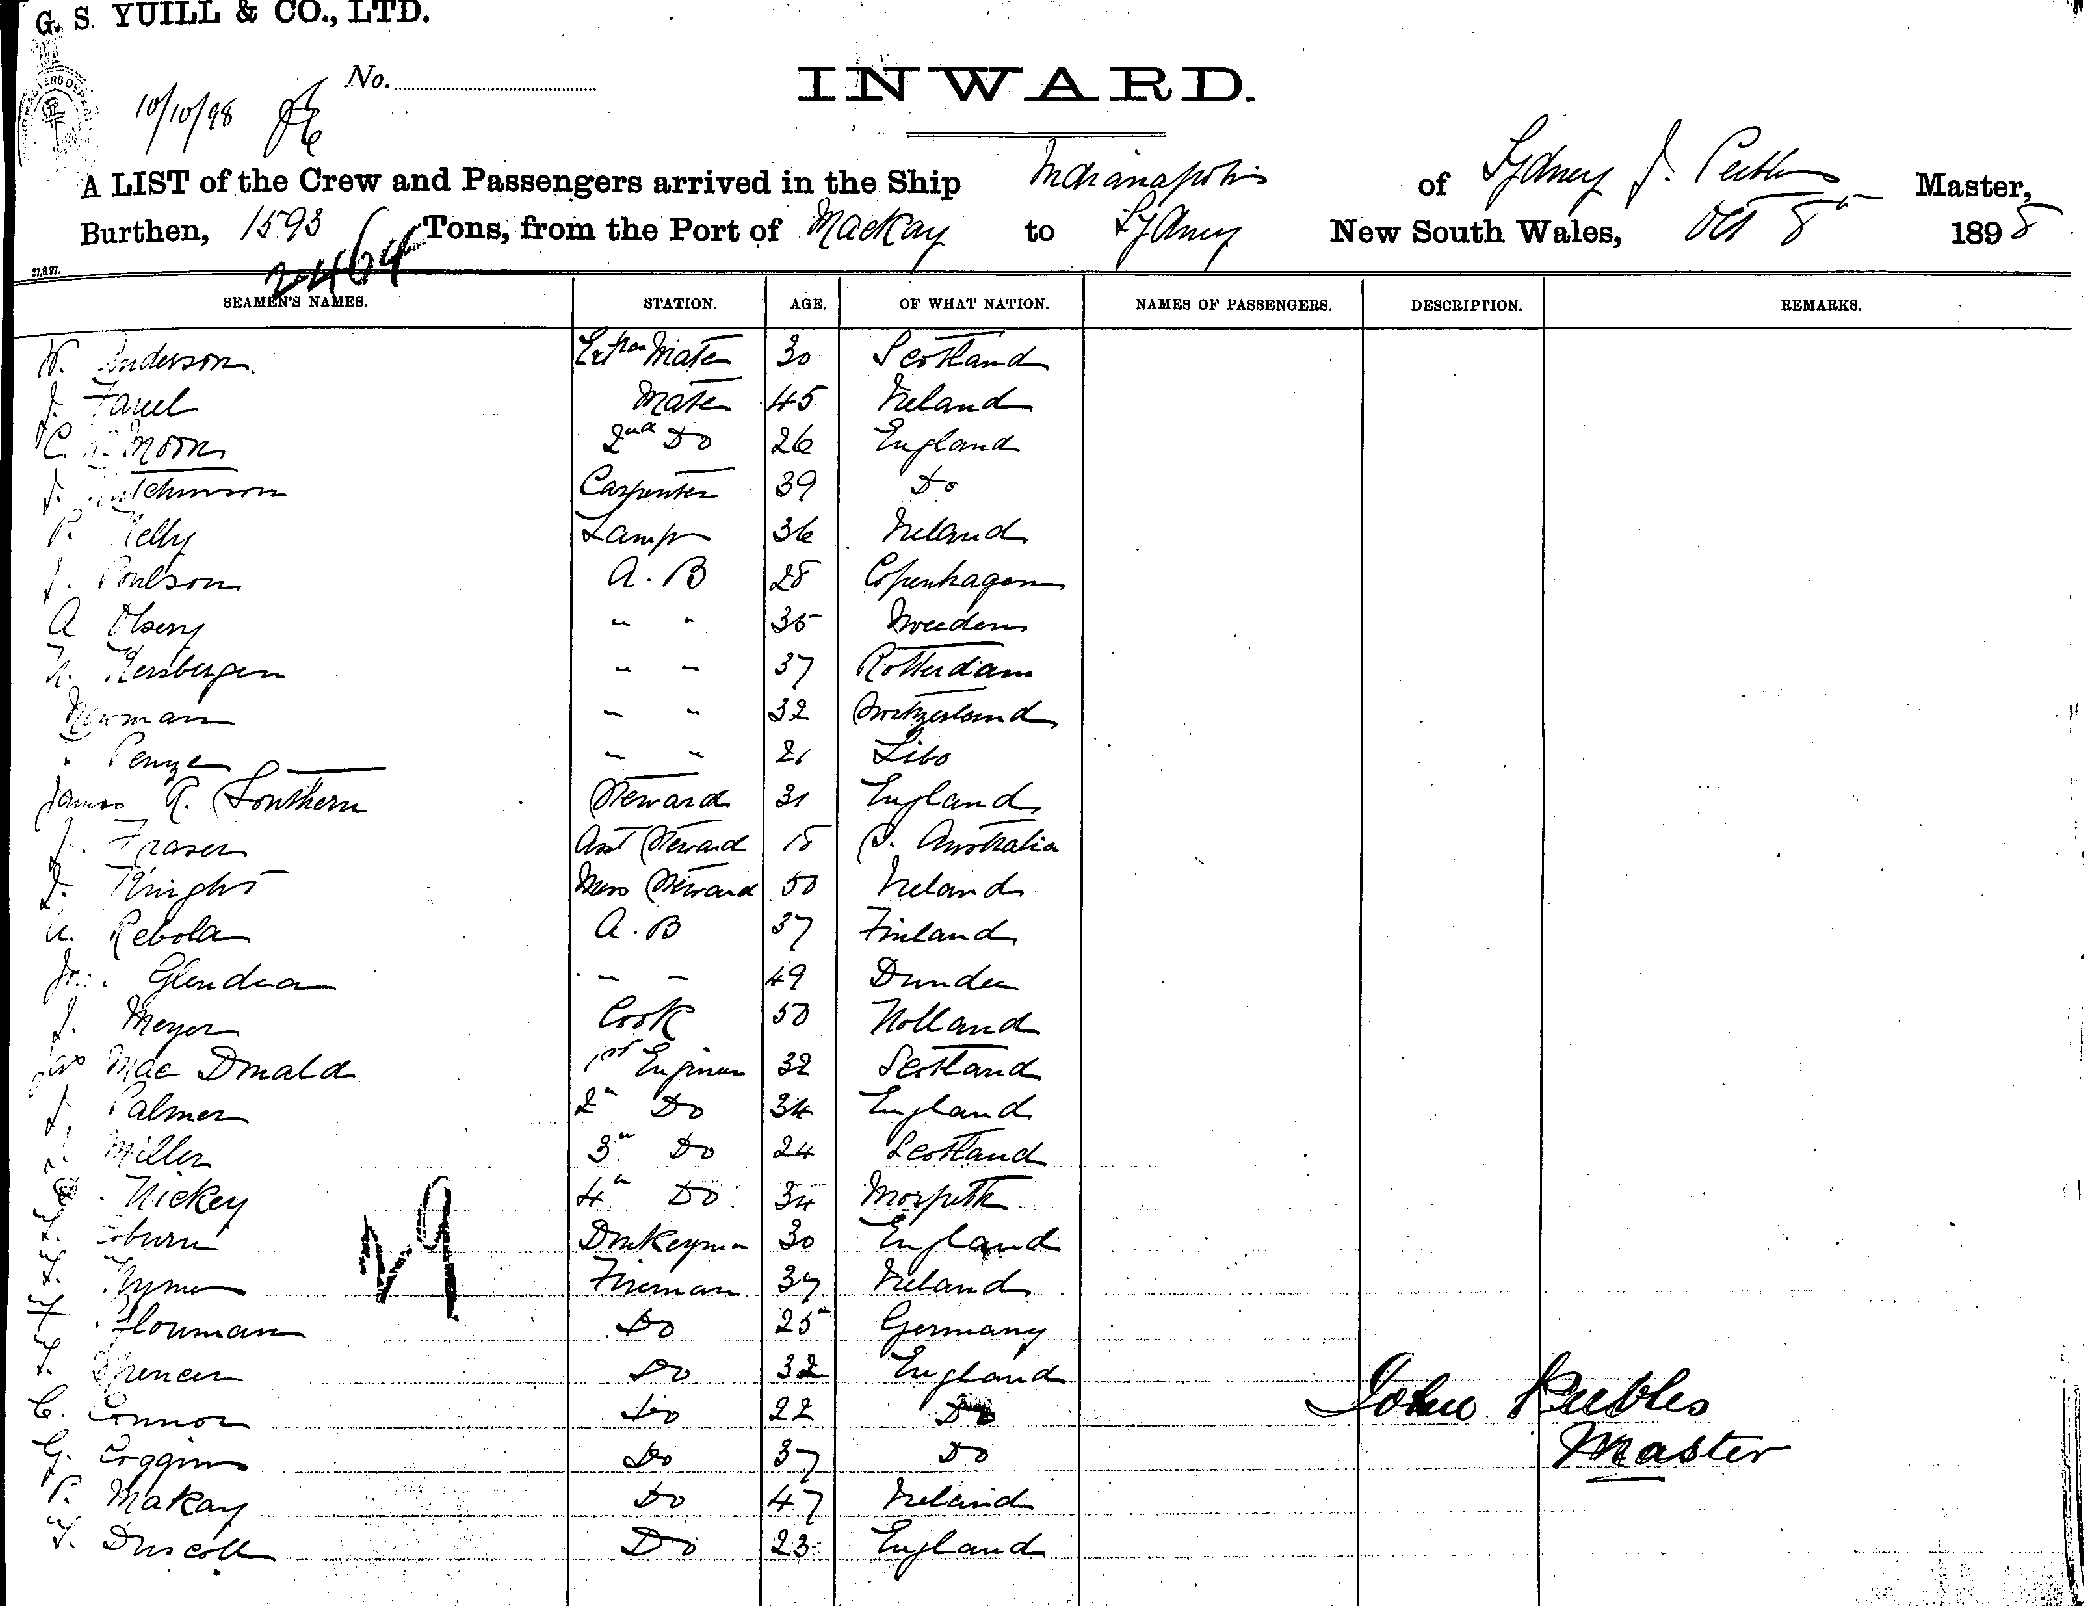 G. S. YUILL & CO., LTD.
No.
INWARD.
10/10/98
A LIST of the Crew and Passengers arrived in the Ship Indianapolis of Sydney J. Master,
Burthen, 1593 Tons, from the Port of Mackay to Sydney New South Wales, Oct 8 1898
2464
27.9.97.
SEAMEN'S NAMES. STATION. AGE. OF WHAT NATION. NAMES OF PASSENGERS. DESCRIPTION. REMARKS.
Anderson Extra Mate 30 Scotland
J. Mate 45 Ireland
C. Moon 2nd Do 26 England
J. Carpenter 39 Do
P. Kelly Lamps 36 Ireland
J. Poulson A. B 28 Copenhagen
A Olseny " " 35 Sweden
Kersbergen " " 37 Rotterdam
Newman " " 32 Switzerland
Penze " " 21 Libo
James R. Southern Steward 31 England
J. Fraser Asst Steward 18 S. Australia
J. Knight Mess Steward 50 Ireland
Rebola A. B 37 Finland
Glendea " " 49 Dundee
J. Meyer Cook 50 Holland
Jas Mac Donald 1st Engineer 32 Scotland
J. Palmer 2n Do 34 England
Miller 3n Do 24 Scotland
Hickey 4n Do 34 Morpeth
Donkeyman 30 England
29
T. Fireman 37 Ireland
Do 25 Germany
T. Spencer Do 32 England
C. Connor Do 22 Do
G. Coggins Do 37 Do
John Peebles
Master
P. MaKay Do 47 Ireland
T. Driscoll Do 23 England